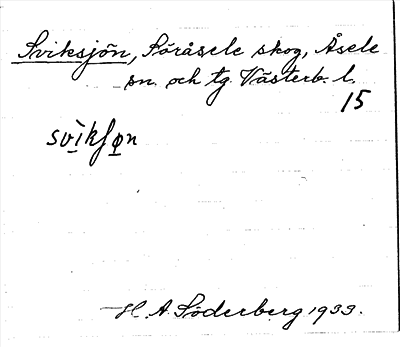 Sviksjön, Söråsele skog, Åsele
sn. och tg. Västerb. l.
15
svìkʃo̱n
H. A. Söderberg 1933.